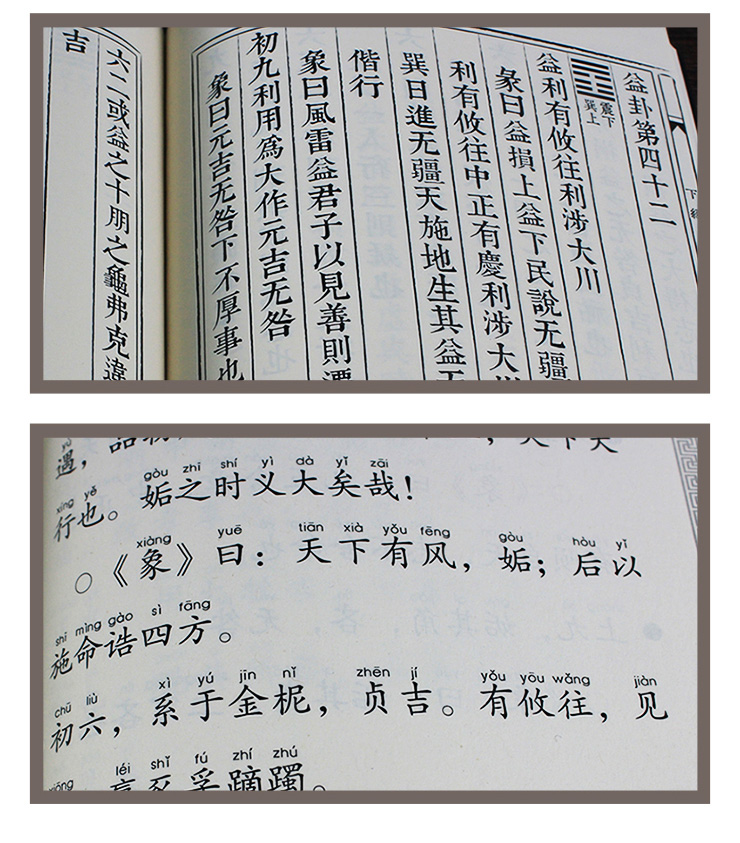 益卦第四十二
震下
巽上
益利有攸往利涉大川
彖曰益損上益下民說无疆
利有攸往中正有慶利涉大川
巽日進无疆天施地生其益无
偕行
象曰風雷益君子以見善則遷
初九利用爲大作元吉无咎
象曰元吉无咎下不厚事也
六二或益之十朋之龜弗克違
吉
遇，
xíng yě gòu zhī shí yì dà yǐ zāi
行也。姤之时义大矣哉！
xiàng yuē tiān xià yǒu fēng gòu hòu yǐ
○《象》曰：天下有风，姤；后以
shī mìng gào sì fāng
施命诰四方。
chū liù xì yú jīn nǐ zhēn jí yǒu yōu wǎng jiàn
初六，系于金柅，贞吉。有攸往，见
xiōng léi shǐ fú zhí zhú
羸豕孚蹢躅。